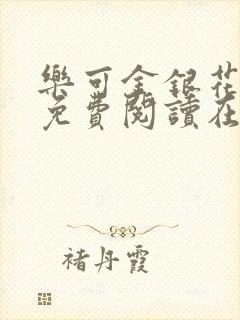 樂可金銀花
免費閱讀在
褚丹霞